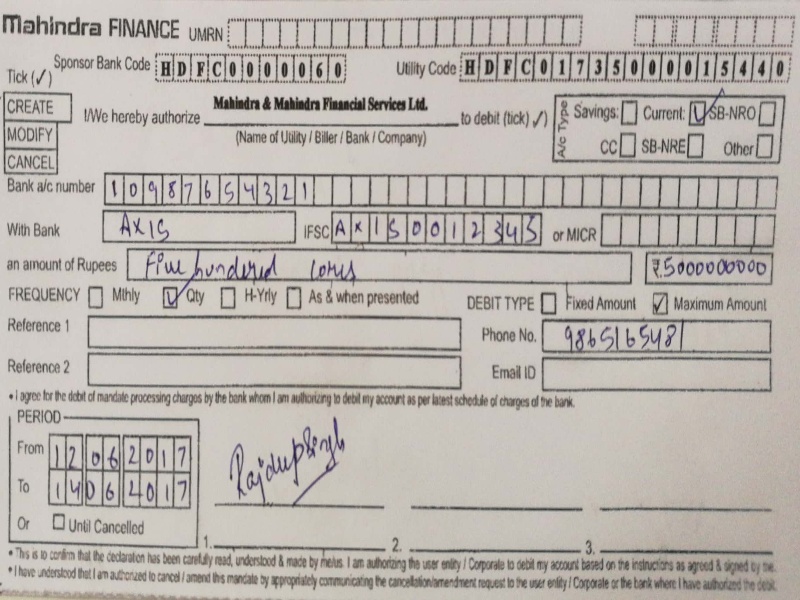 Mahindra FINANCE UMRN
Tick (✓) Sponsor Bank Code HDFC0000060 Utility Code HDFC01735000015440
CREATE
MODIFY
CANCEL
I/We hereby authorize Mahindra & Mahindra Financial Services Ltd. to debit (tick) ✓)
(Name of Utility / Biller / Bank / Company)
A/c Type Savings: Current: ✓ SB-NRO
CC SB-NRE Other
Bank a/c number 10987654321
With Bank AXIS IFSC AXIS0012345 or MICR
an amount of Rupees Five hundered cores ₹.5000000000
FREQUENCY Mthly ✓ Qty H-Yrly As & when presented DEBIT TYPE Fixed Amount ✓ Maximum Amount
Reference 1 Phone No. 9865165481
Reference 2 Email ID
• I agree for the debit of mandate processing charges by the bank whom I am authorizing to debit my account as per latest schedule of charges of the bank.
PERIOD
From 12062017
To 14062017
Or Until Cancelled
Rajdupsingh
1. 2. 3.
• This is to confirm that the declaration has been carefully read, understood & made by me/us. I am authorizing the user entity / Corporate to debit my account based on the instructions as agreed & signed by me.
• I have understood that I am authorized to cancel / amend this mandate by appropriately communicating the cancellation/amendment request to the user entity / Corporate or the bank where I have authorized the debit.